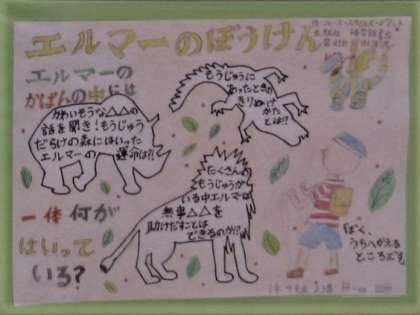 エルマーのぼうけん
エルマーの
かばんの中には
一体何が
はいって
いる?
かわいそうな△△の
話を聞き!もうじゅう
だらけの森にはいった
エルマーの運命は?!
もうじゅうに
あったときの
きりぬけ
かたとは!?
たくさんの
もうじゅうが
いる中エルマーは
無事△△を
助けだすことは
できるのか!?
ぼく、
うちへかえる
ところです。